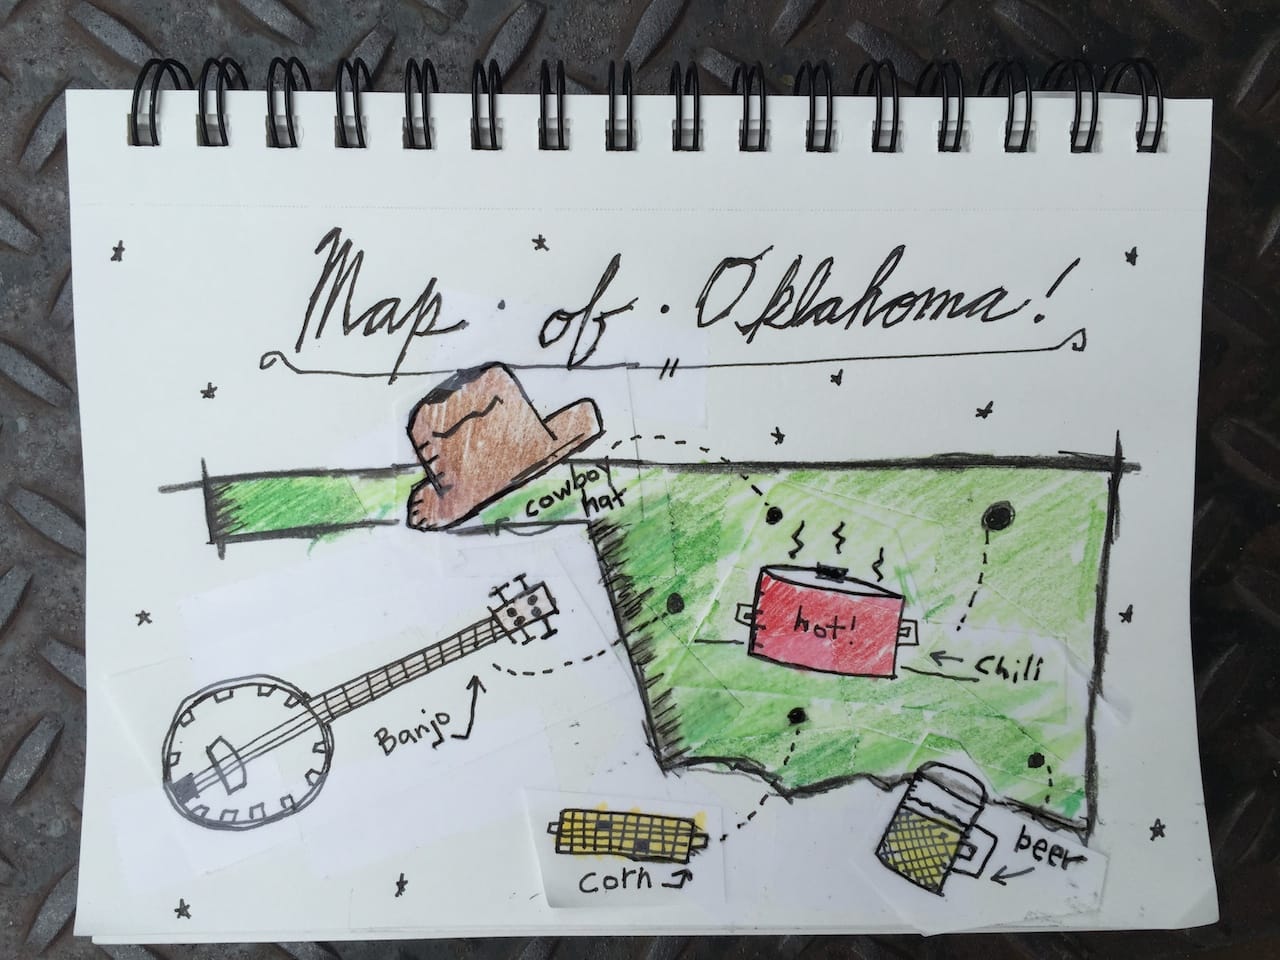 Map · of · Oklahoma!
cowboy
hat
hot!
Chili
Banjo
corn
beer